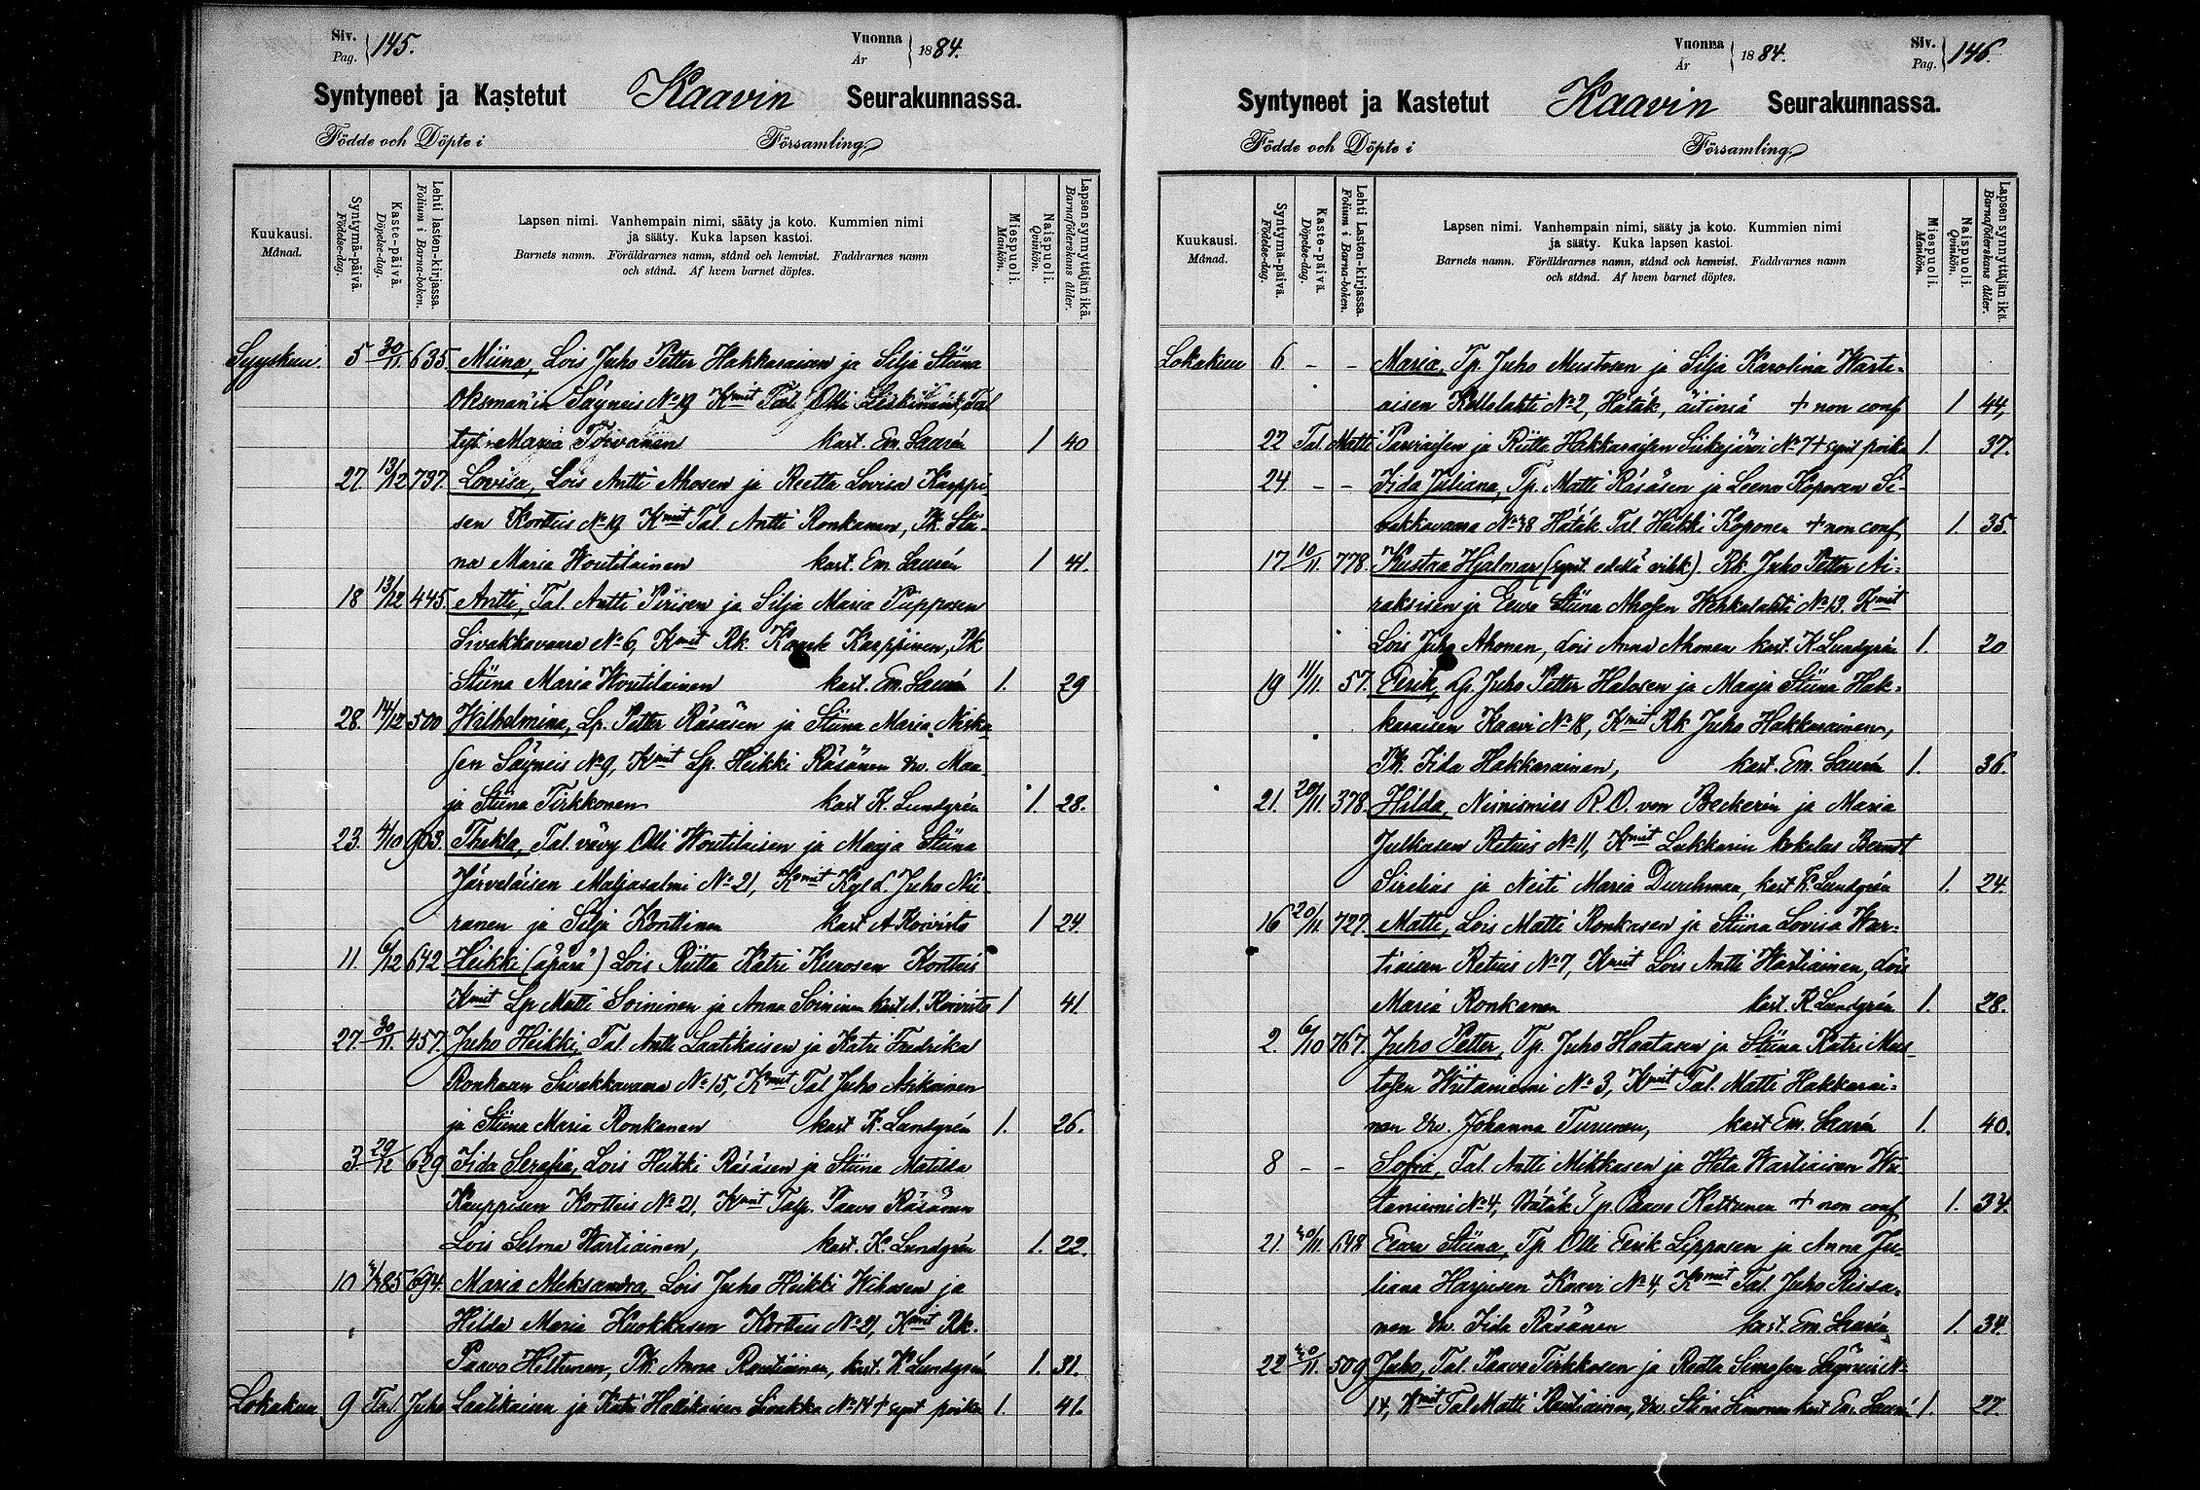 Siv. Pag. 145.
Vuonna År 1884.
Syntyneet ja Kastetut Kaavin Seurakunnassa.
Födde och Döpte i Församling
Kuukausi. Månad.
Syntymä-päivä. Födelse-dag.
Kaste-päivä. Döpelse-dag.
Lehti lasten-kirjassa. Folium i Barna-boken.
Lapsen nimi. Vanhempain nimi, sääty ja koto. Kummien nimi
ja sääty. Kuka lapsen kastoi.
Barnets namn. Föräldrarnes namn, stånd och hemvist. Faddrarnes namn
och stånd. Af hvem barnet döptes.
Miespuoli. Mankön.
Naispuoli. Qvinkön.
Lapsen synnyttäjän ikä. Barnaföderskans ålder.
Syyskuu. 5 30/11 635. Miina, Lois Juho Petter Hakkaraisen ja Silja Stiina
Oksman'in Säyneis No 19 Kmit Tal. Olli Leskinen, Tal
tyt. Maria Toivanen kast. Em. Laurén 1 40
27. 13/12 737. Lovisa, Lois Antti Ahosen ja Reetta Lovisa Karppi-
sen Kortteis No 19 Kmit Tal. Antti Ronkanen, Pk. Stii-
na Maria Woutilainen kast. Em. Laurén 1 41.
18 13/12 445. Antti, Tal. Antti Pirisen ja Silja Maria Piipposen
Sivakkavaara No 6, Kmit Rk. Karppinen, Pk
Stiina Maria Woutilainen kast. Em. Laurén 1. 29
28. 14/12 500 Wilhelmina, Lp. Petter Räsäsen ja Stiina Maria Niska-
sen Säyneis No 9, Kmit Lp. Heikki Räsänen vv. Maa-
ja Stiina Tirkkonen kast K. Lundgrén 1. 28.
23. 4/10 903. Thekla, Tal. vävy Olli Woutilaisen ja Maaja Stiina
Järveläisen Maljasalmi No 21, Kmit Juho Nii-
ranen ja Silja Konttinen kast A. Koivisto 1 24.
11. 6/12 642 Heikki (äpärä) Lois Riitta Katri Kurosen Kortteis
Kmit Lp Matti Soininen ja Anna Soininen kast. A. Koivisto 1 41.
27. 30/11. 457. Juho Heikki, Tal. Antti Laatikaisen ja Katri Fredrika
Ronkasen Sivakkavaara No 15, Kmit Tal Juho
ja Stiina Maria Ronkanen kast K. Lundgrén 1. 26.
3 29/12 629 Iida Serafia, Lois Heikki Räsäsen ja Stiina Matilda
Kauppisen Kortteis No 21, Kmit Talp. Paavo Räsänen
Lois Selma Wartiainen, kast. K. Lundgrén 1. 22.
10 85 694. Maria Aleksandra, Lois Juho Heikki Wihosen ja
Hilda Maria Huokkasen Kortteis No 21, Kmit Rk.
Paavo Hiltunen, Pk. Anna Rautiainen, kast. K. Lundgrén 1. 31.
Lokakuu 9 Tal. Juho Laatikaisen ja Katri Heikkisen Sivakka No 14 + synt poika 1. 41.
Vuonna År 1884.
Siv. Pag. 146.
Syntyneet ja Kastetut Kaavin Seurakunnassa.
Födde och Döpte i Församling
Kuukausi. Månad.
Syntymä-päivä. Födelse-dag.
Kaste-päivä. Döpelse-dag.
Lehti Lasten-kirjassa. Folium i Barna-boken.
Lapsen nimi. Vanhempain nimi, sääty ja koto. Kummien nimi
ja sääty. Kuka lapsen kastoi.
Barnets namn. Föräldrarnes namn, stånd och hemvist. Faddrarnes namn
och stånd. Af hvem barnet döptes.
Miespuoli. Mankön.
Naispuoli. Qvinkön.
Lapsen synnyttäjän ikä. Barnaföderskans ålder.
Lokakuu 6 - - Maria, Tp. Juho Mustosen ja Silja Karolina Warti-
aisen Kettolahti No 2, Hätäk, äitinsä + non conf 1 44,
22 Tal. Matti Parviaisen ja Riitta Hakkaraisen Siikajärvi No 7 + synt poika 1. 37.
24 - - Iida Juliana, Tp. Matti Räsäsen ja Leena Koposen Si-
vakkavaara No 48 Hätäk. Tal. Heikki Koponen + non conf 1. 35.
17 10/11. 778. Kustaa Hjalmar (synt. edellä vihk). Rk. Juho Petter Ai-
raksisen ja Eeva Stiina Ahosen Wehkalahti No 13. Kmit
Lois Juho Ahonen, Lois Anna Ahonen kast. K. Lundgrén 1. 20
19 11/11. 57. Eerik, Lp. Juho Petter Halosen ja Maaja Stiina Hak-
karaisen Kaavi No 18, Kmit Rk Juho Hakkarainen,
Pk. Iida Hakkarainen, kast. Em. Laurén 1. 36.
21. 20/11. 378. Hilda, Nimismies R. O. von Beckerin ja Maria
Julkusen Retuis No 11, Kmit Lukkarin kokelas Berndt
Sirelius ja Neiti Maria Durchman, kast K. Lundgrén 1. 24.
16 20/11 727. Matti, Lois Matti Ronkasen ja Stiina Lovisa War-
tiaisen Retuis No 7, Kmit Lois Antti Wartiainen, Lois
Maria Ronkanen kast. K Lundgrén 1. 28.
2. 6/10 767. Juho Petter, Tp. Juho Haatasen ja Stiina Katri Mus-
tosen Wiitaniemi No 3, Kmit Tal. Matti Hakkarai-
nen vv. Johanna Turunen, kast Em. Laurén 1. 40.
8 - - Sofia, Tal. Antti Mikkasen ja Heta Wartiaisen Wii-
taniemi No 4, Hätäk Tp. Paavo Kettunen + non conf 1. 34.
21. 30/11 648 Eeva Stiina, Tp Olli Eerik Lipposen ja Anna Ju-
liana Harjusen Kaavi No 4, Kmit Tal. Juho Rissa-
nen vv. Iida Räsänen kast. Em. Laurén 1. 34.
22 30/11. 509 Juho, Tal. Paavo Tirkkosen ja Reetta Simosen Säyneis No
14, Kmit Tal Matti Rautiainen, vv. Stina Simonen kast Em. Laurén 1. 27.